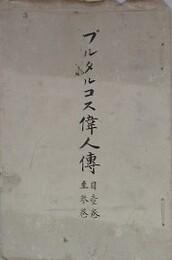 プルタルコス偉人傳
自壹卷
至參卷